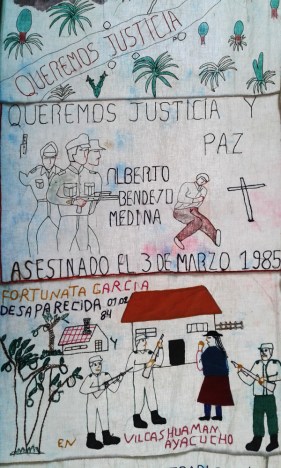 QUEREMOS JUSTICIA
QUEREMOS JUSTICIA Y
PAZ
ALBERTO
BENDEZO
MEDINA
ASESINADO EL 3 DE MARZO 1985
FORTUNATA GARCIA
DESAPARECIDA 01.02
84
Y
EN VILCASHUAMAN
AYACUCHO